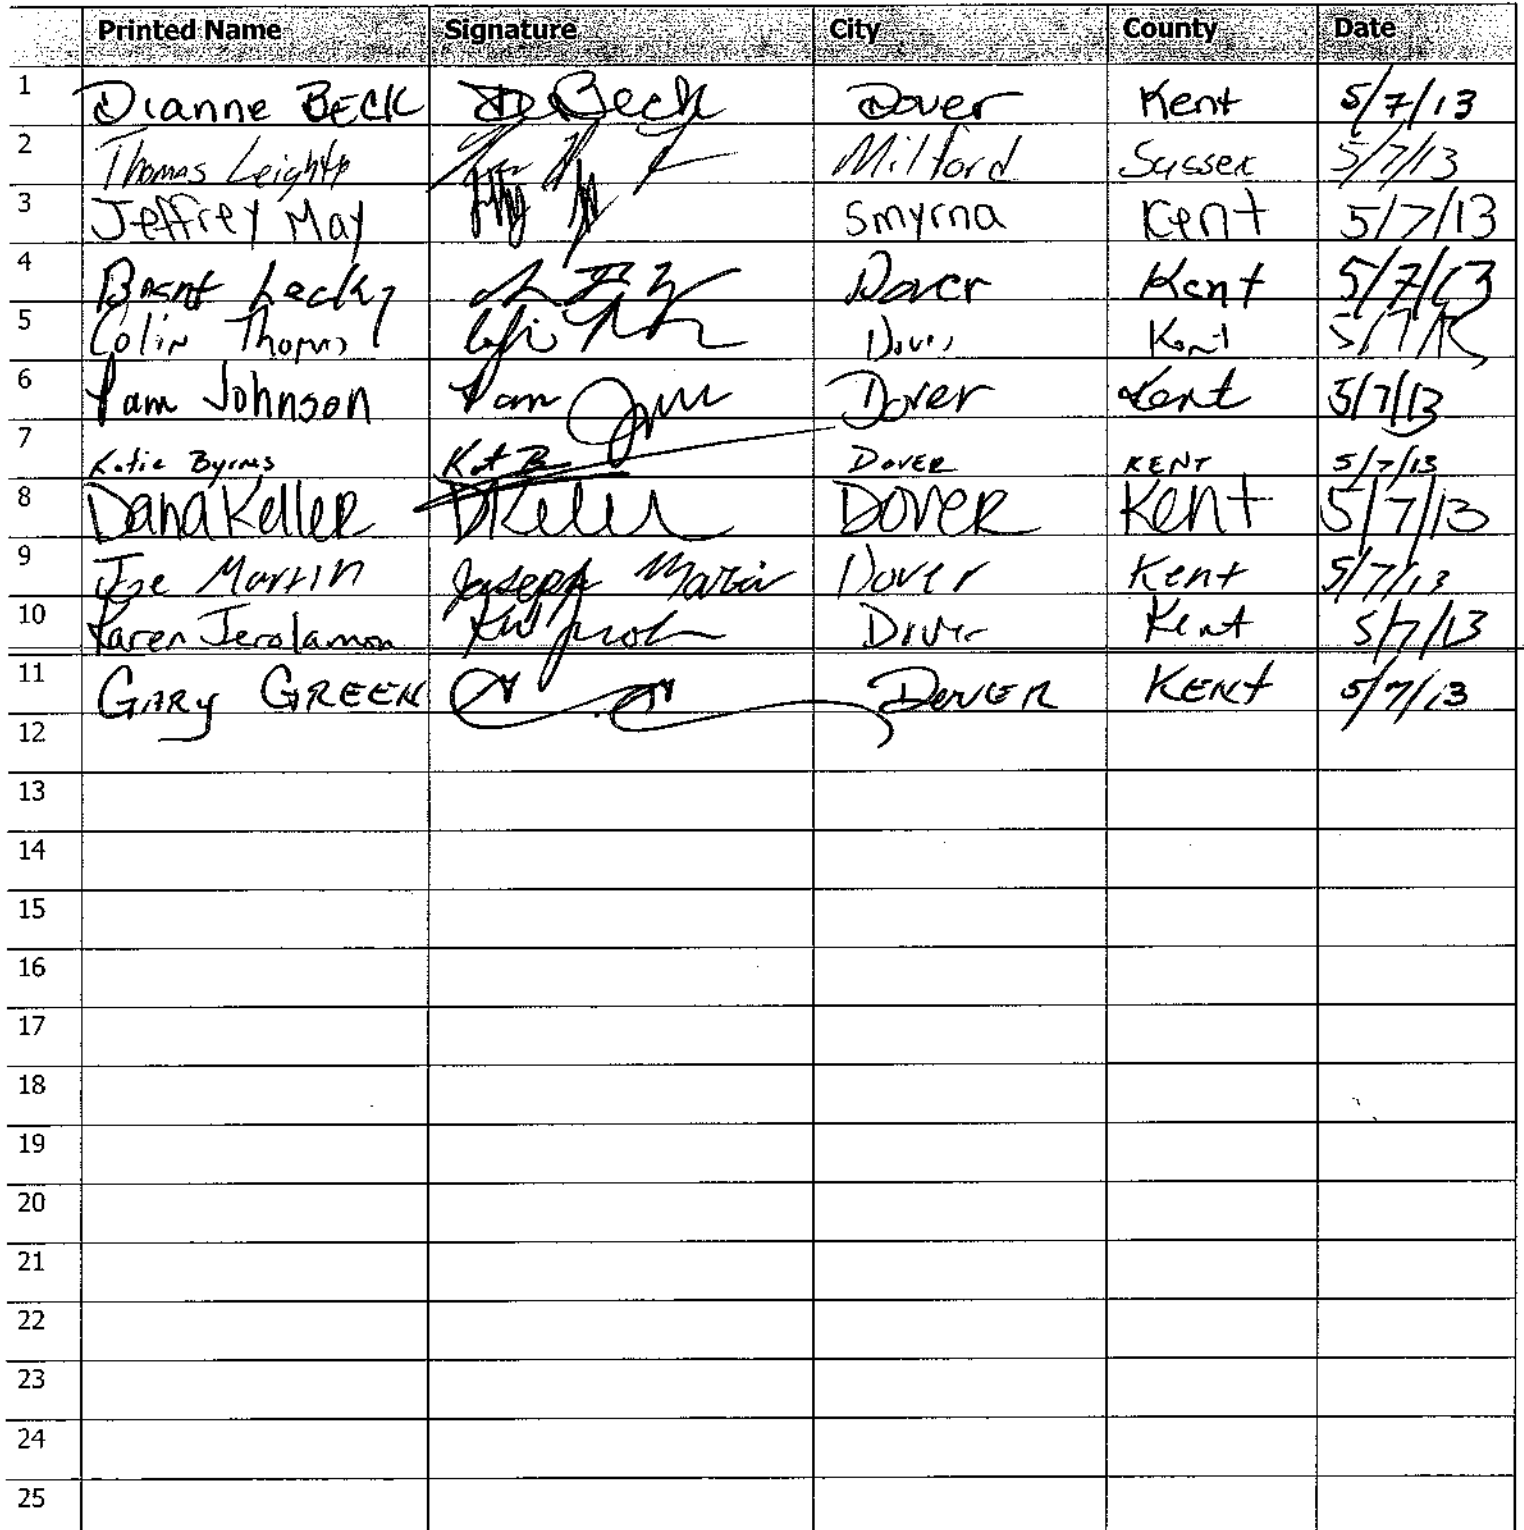 Printed Name Signature City County Date
1 Dianne BECK D Beck Dover Kent 5/7/13
2 Thomas Leighty Milford Sussex 5/7/13
3 Jeffrey May Smyrna Kent 5/7/13
4 Brent Lecky Dover Kent 5/7/13
5 Colin Thomas Dover Kent 5/7/13
6 Pam Johnson Pam Dover Kent 5/7/13
7 Katie Byrnes Kat B DOVER KENT 5/7/13
8 Dana Keller DKeller DOVER Kent 5/7/13
9 Joe Martin Joseph Martin Dover Kent 5/7/13
10 Karen Jerolamon Dover Kent 5/7/13
11 GARy GREEN DOVER KENT 5/7/13
12
13
14
15
16
17
18
19
20
21
22
23
24
25